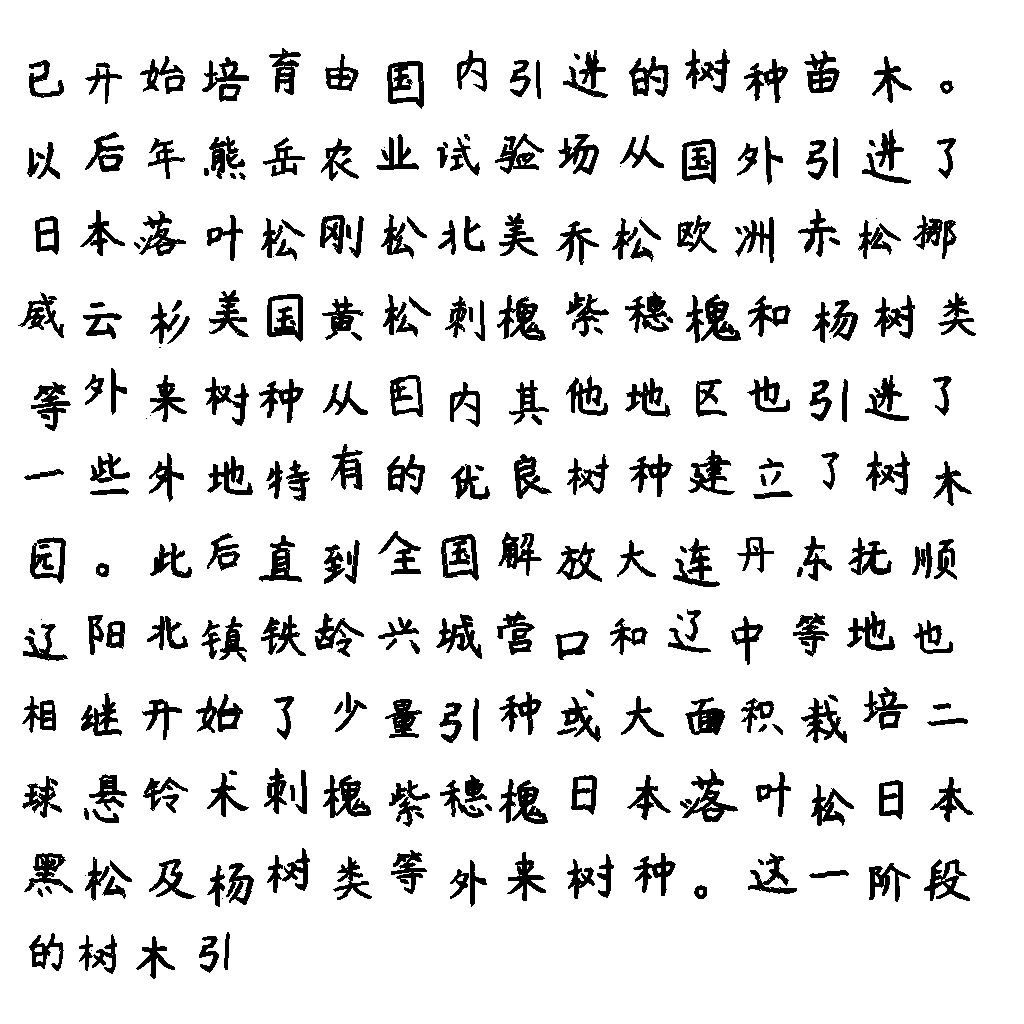 已开始培育由国内引进的树种苗木。
以后年熊岳农业试验场从国外引进了
日本落叶松刚松北美乔松欧洲赤松挪
威云杉美国黄松刺槐紫穗槐和杨树类
等外来树种从国内其他地区也引进了
一些外地特有的优良树种建立了树木
园。此后直到全国解放大连丹东抚顺
辽阳北镇铁龄兴城营口和辽中等地也
相继开始了少量引种或大面积栽培二
球悬铃木刺槐紫穗槐日本落叶松日本
黑松及杨树类等外来树种。这一阶段
的树木引